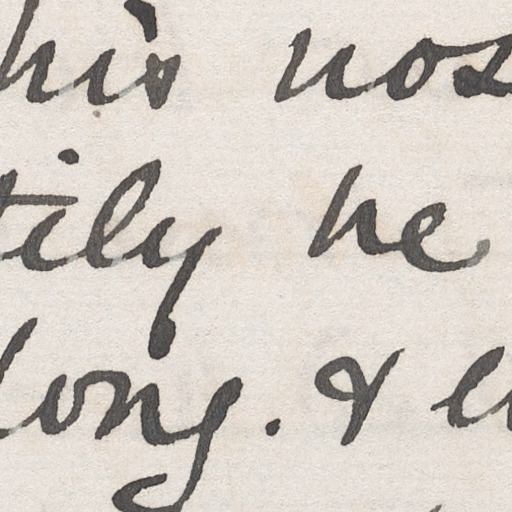 his nos
tily he
long. & e